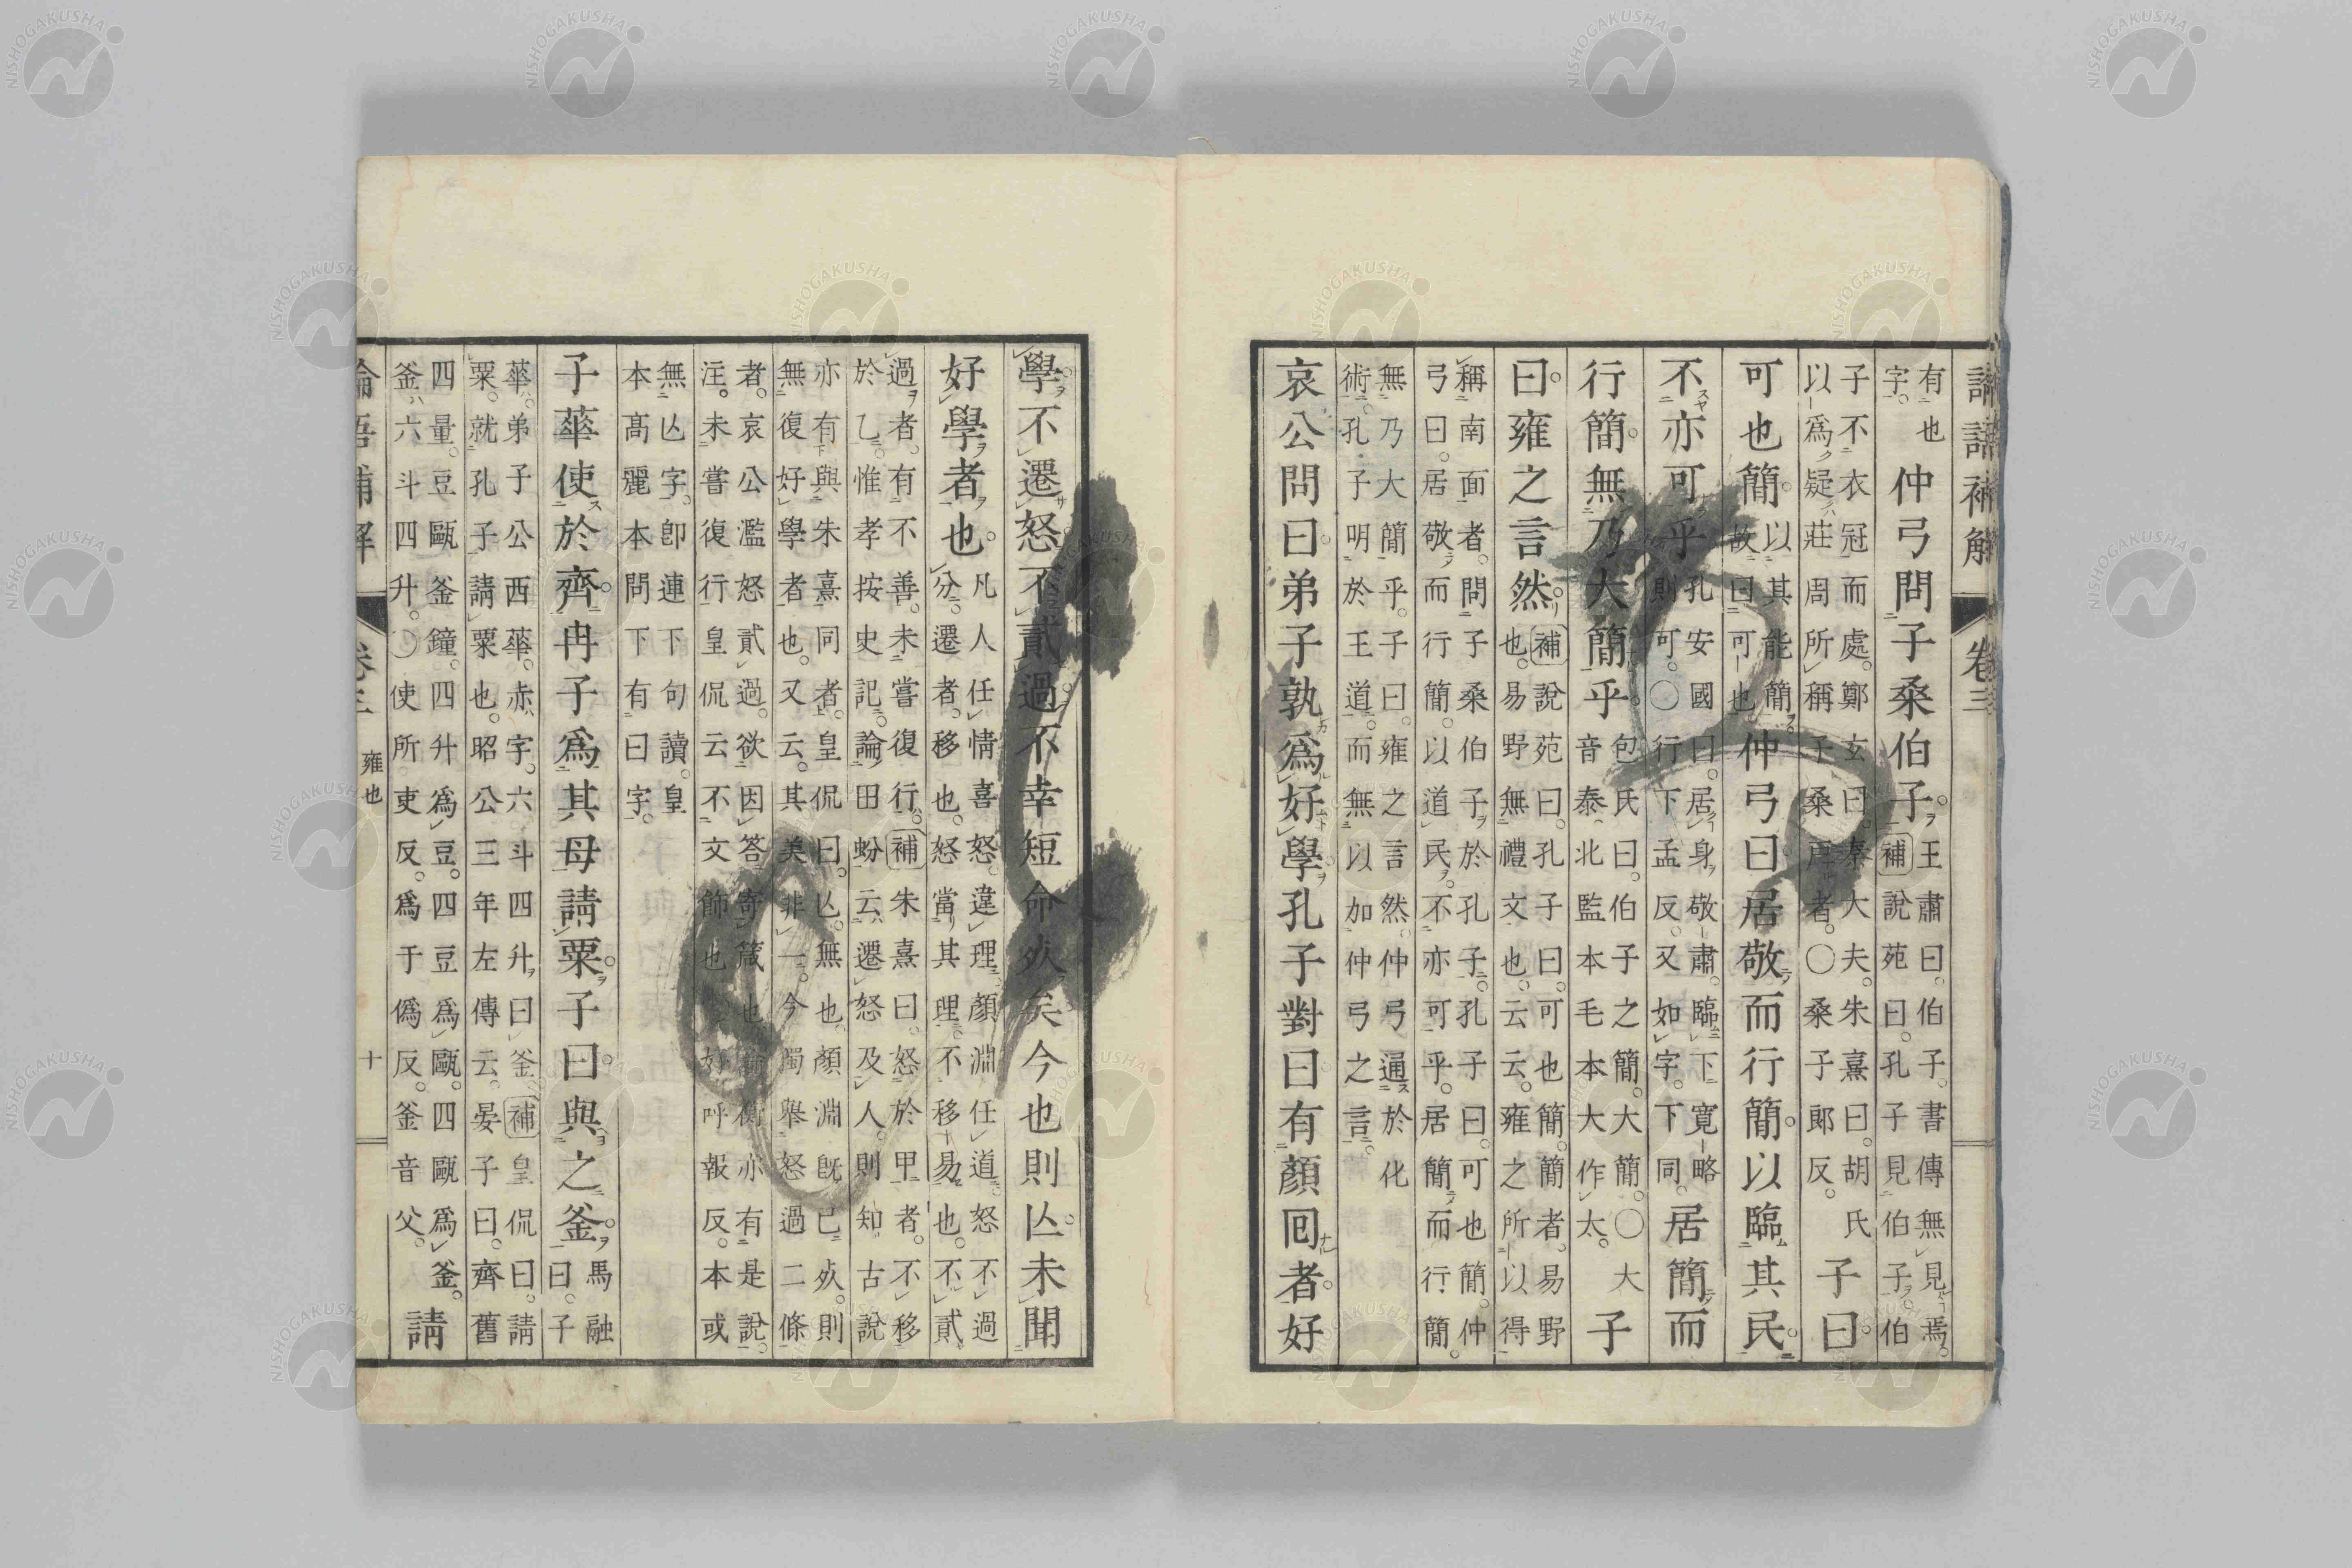 論語補解 卷三
有也
字。
仲弓問子桑伯子
王肅曰。伯子。書傳無見焉。
補說苑曰。孔子見伯子。伯
子不衣冠而處。鄭玄曰。秦大夫。朱熹曰。胡氏
以爲疑莊周所稱子桑戸者。〇桑子郎反。
子曰
可也簡
以其能簡
故曰可也
仲弓曰居敬而行簡以臨其民
不亦可乎
孔安國曰。居身敬肅。臨下寬略
則可。〇行下孟反。又如字。下同。
居簡而
行簡無乃大簡乎
包氏曰。伯子之簡。大簡。〇大
音泰。北監本毛本大作太。
子
曰雍之言然
補說苑曰。孔子曰。可也簡。簡者。易野
也。易野無禮文也。云云。雍之所以得
稱南面者。問子桑伯子於孔子。孔子曰。可也簡。仲
弓曰。居敬而行簡。以道民。不亦可乎。居簡而行簡。
無乃大簡乎。子曰。雍之言然。仲弓通於化
術。孔子明於王道。而無以加仲弓之言。
哀公問曰弟子孰爲好學孔子對曰有顏囘者好
學不遷怒不貳過不幸短命死矣今也則亾未聞
好學者也
凡人任情喜怒。違理。顏淵任道。怒不過
分。遷者。移也。怒當其理。不移易也。不貳
過者。有不善。未嘗復行。補朱熹曰。怒於甲者。不移
於乙。惟孝按史記。論田蚡云。遷怒及人。則知古說
亦有與朱熹同者。皇侃曰。亾。無也。顏淵既已死。則
無復好學者也。又云。其美非一。今獨舉怒過二條
者。哀公濫怒貳過。欲因答寄箴也。論衡亦有是說。
注。未嘗復行皇侃云不文飾也。好呼報反。本或
無亾字。卽連下句讀。皇
本高麗本問下有曰字。
子華使於齊冉子爲其母請粟子曰與之釜
馬融
曰。子
華弟子公西華。赤字。六斗四升曰釜。補皇侃曰。請
粟。就孔子請粟也。昭公三年左傳云。晏子曰。齊舊
四量。豆甌釜鐘。四升爲豆。四豆爲甌。四甌爲釜。
釜六斗四升。〇使所吏反。爲于僞反。釜音父。
請
論語補解 卷三 雍也 十
NISHOGAKUSHA